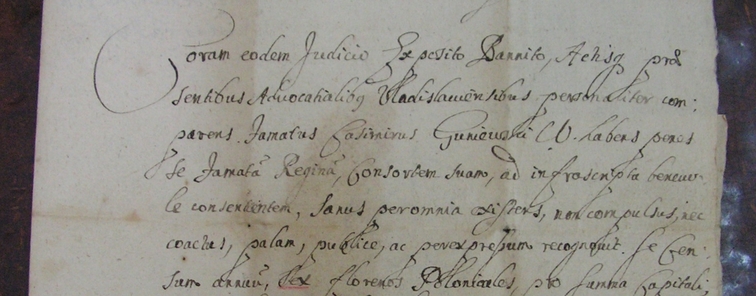 Coram eodem Judicio Exposito Bannito, Actisq præ
sentibus Advocatialibq Vladislaviensibus personaliter com:
parens Famatus Casimirus C. V. habens penes
se Famatã Reginã, Consortem suam, ad infrascripta benevo
le consentientem, sanus per omnia existens, non compulsus, nec
coactus, palam, publice, ac per expressum recognovit. Se Cen:
sum annuũ, Sex florenos Polonicales, pro summa Capitali